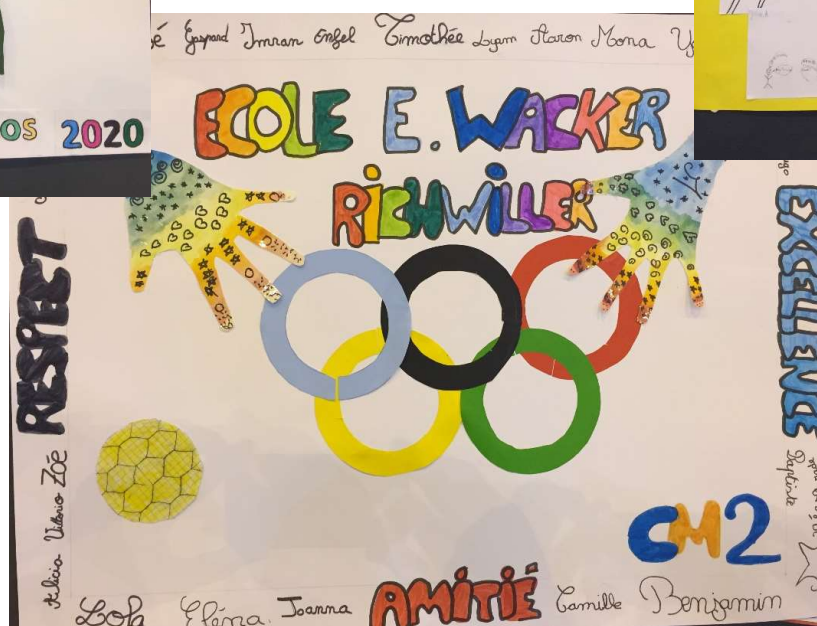 OS 2020
Gaspard Imran Enzel Timothée Lyam Aaron Mona
ECOLE E. WACKER
RICHWILLER
RESPECT
EXCELLENCE
Alicia Vittorio ZOÉ
Baptiste
CM2
Lola Eléna. Joanna AMITIÉ Camille Benjamin